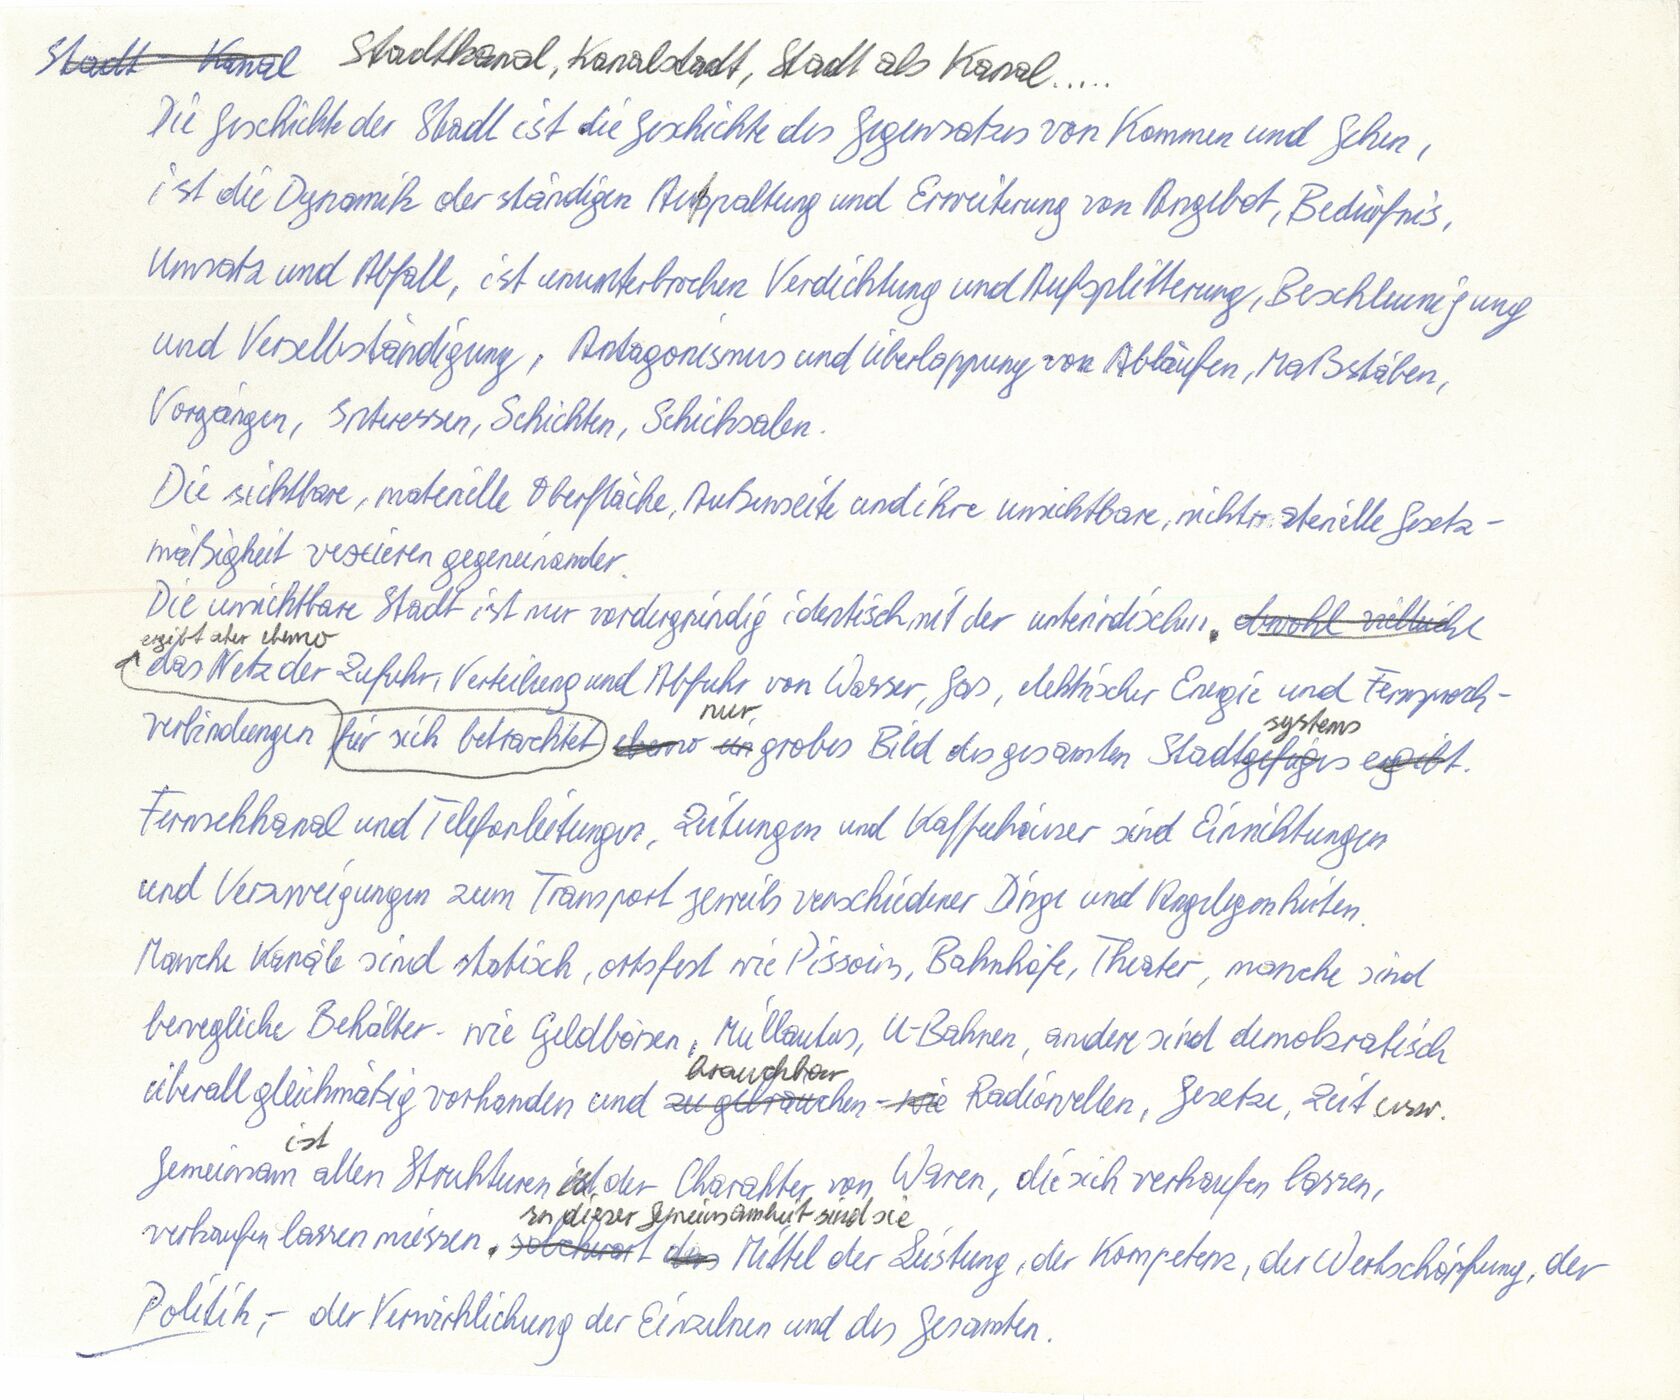 Stadt - Kanal Stadtkanal, Kanalstadt, Stadt als Kanal.....
Die Geschichte der Stadt ist die Geschichte des Gegensatzes von Kommen und Gehen,
ist die Dynamik der ständigen Aufspaltung und Erweiterung von Angebot, Bedürfnis,
Umsatz und Abfall, ist ununterbrochen Verdichtung und Aufsplitterung, Beschleunigung
und Verselbständigung, Antagonismus und Überlappung von Abläufen, Maßstäben,
Vorgängen, Interessen, Schichten, Schicksalen.
Die sichtbare, materielle Oberfläche, Außenseite und ihre unsichtbare, nichtmaterielle Gesetz-
mäßigkeit vexieren gegeneinander.
Die unsichtbare Stadt ist nur vordergründig identisch mit der unterirdischen. obwohl vielleicht
ergibt aber ebenso
das Netz der Zufuhr, Verteilung und Abfuhr von Wasser, Gas, elektrischer Energie und Fernsprech-
nur systems
verbindungen für sich betrachtet ebenso ein grobes Bild des gesamten Stadtgefüges ergibt.
Fernsehkanal und Telefonleitungen, Zeitungen und Kaffeehäuser sind Einrichtungen
und Verzweigungen zum Transport jeweils verschiedener Dinge und Angelegenheiten.
Manche Kanäle sind statisch, ortsfest wie Pissoirs, Bahnhöfe, Theater, manche sind
bewegliche Behälter - wie Geldbörsen, Müllautos, U-Bahnen, andere sind demokratisch
brauchbar
überall gleichmäßig vorhanden und zu gebrauchen - wie Radiowellen, Gesetze, Zeit usw.
ist
Gemeinsam allen Strukturen ist der Charakter von Waren, die sich verkaufen lassen,
In dieser Gemeinsamkeit sind sie
verkaufen lassen müssen. solcherart das Mittel der Leistung, der Kompetenz, der Wertschöpfung, der
Politik, - der Verwirklichung der Einzelnen und des Gesamten.